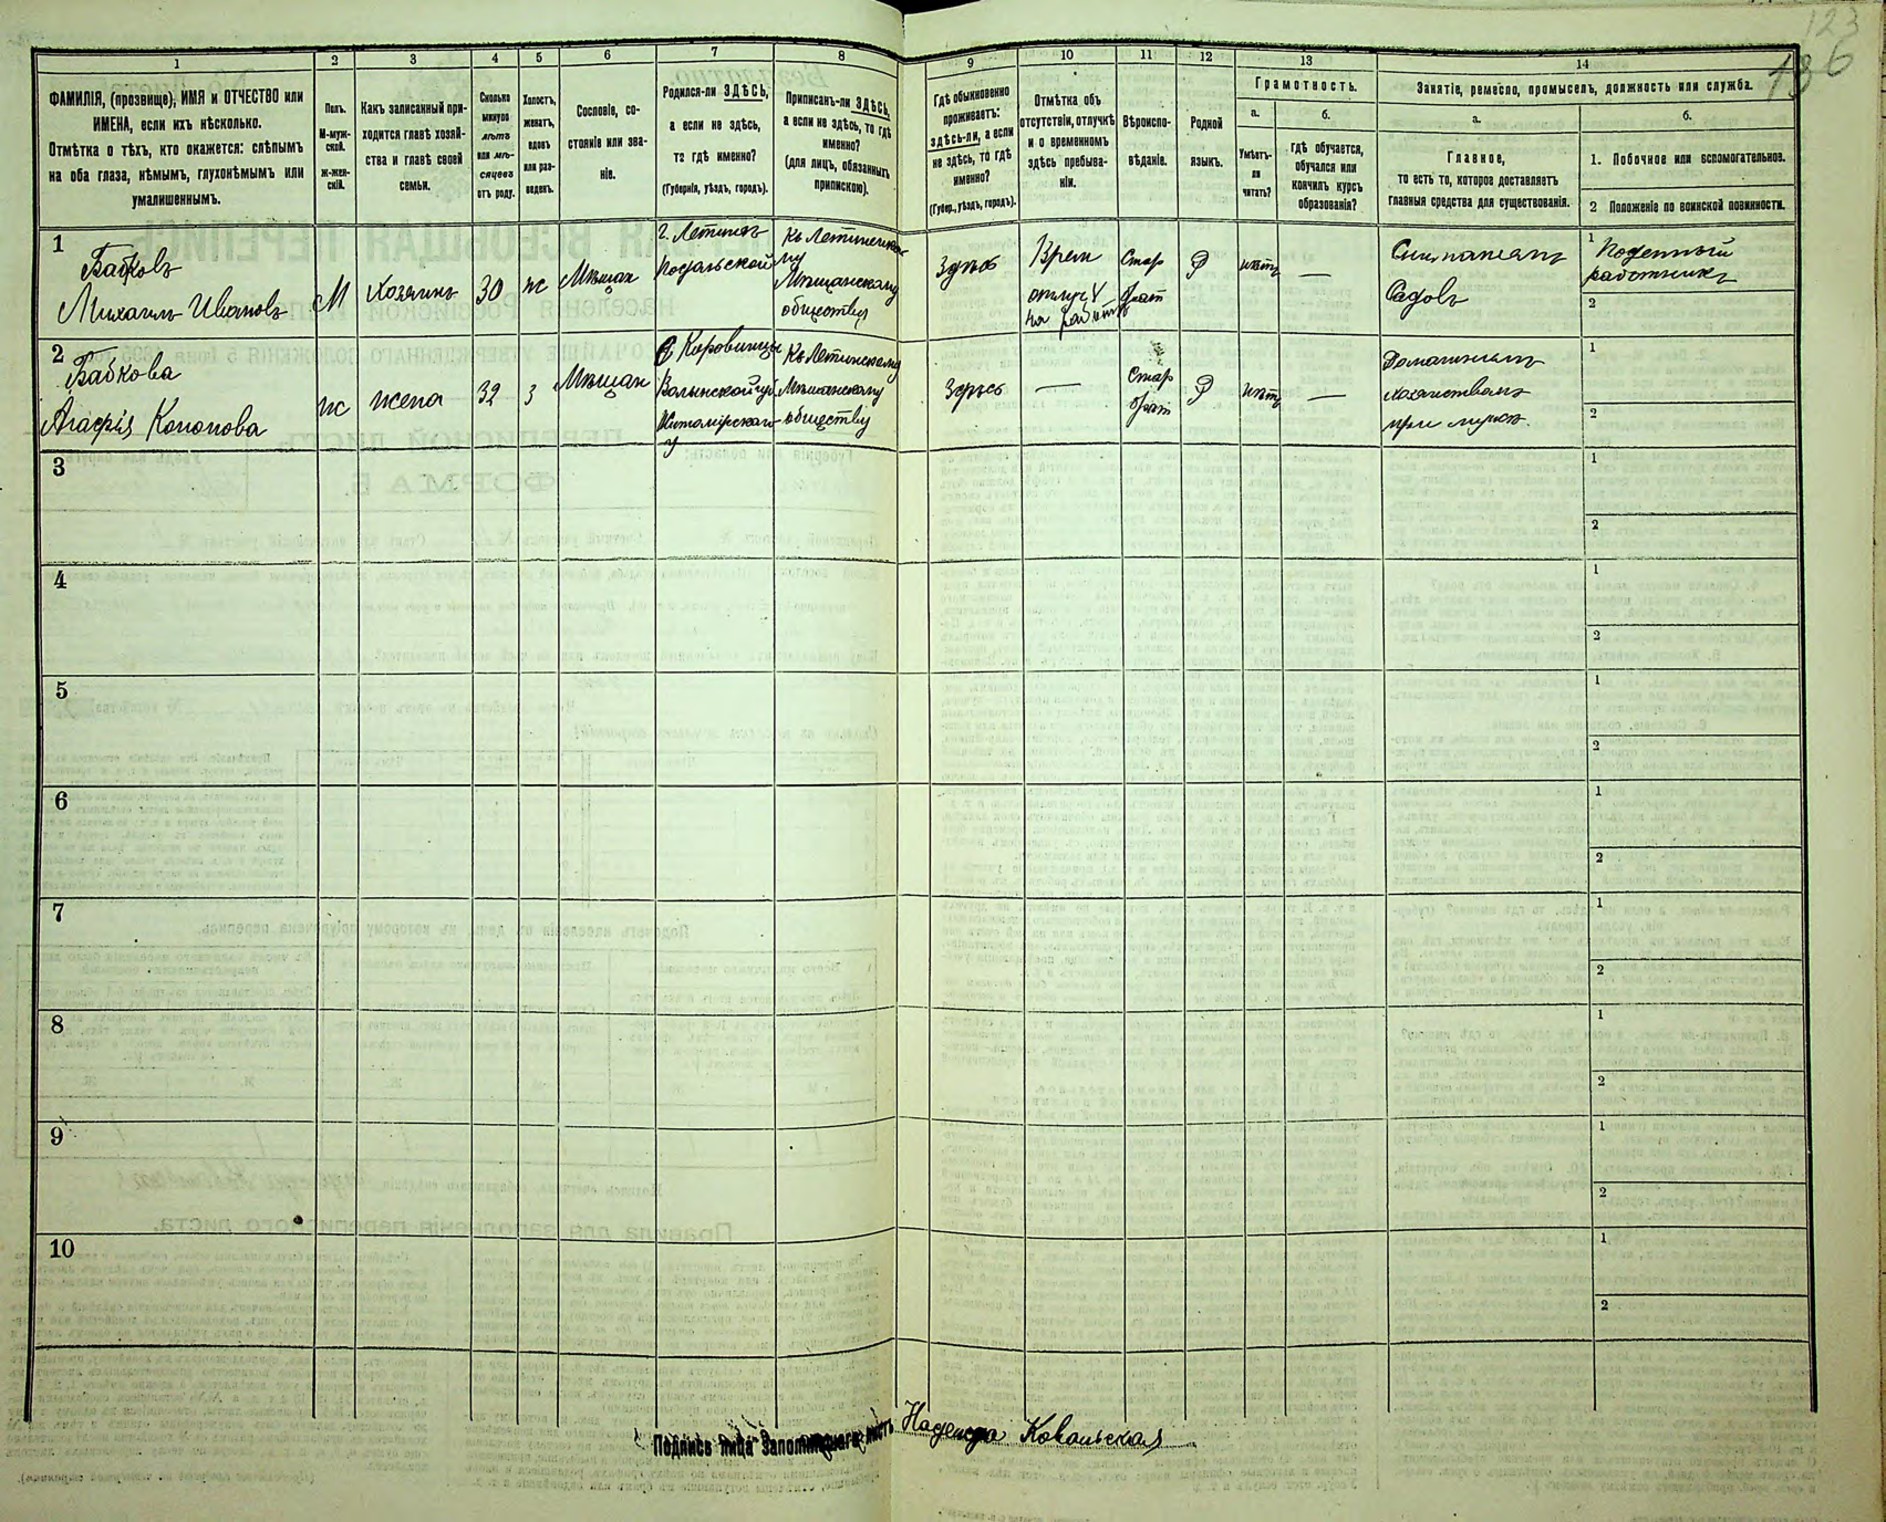 123
136
1
2
3
4
5
6
7
8
9
10
11
12
13
14
ФАМИЛІЯ, (прозвище), ИМЯ и ОТЧЕСТВО или
ИМЕНА, если ихъ нѣсколько.
Отмѣтка о тѣхъ, кто окажется: слѣпымъ
на оба глаза, нѣмымъ, глухонѣмымъ или
умалишеннымъ.
Полъ.
М-муж-
ской.
ж-жен-
скій.
Какъ записанный при-
ходится главѣ хозяй-
ства и главѣ своей
семьи.
Сколько
минуло
лѣтъ
или мѣ-
сяцевъ
отъ роду.
Холостъ,
женатъ,
вдовъ
или раз-
веденъ.
Сословіе, со-
стояніе или зва-
ніе.
Родился-ли ЗДѢСЬ,
а если не здѣсь,
то гдѣ именно?
(Губернія, уѣздъ, городъ).
Приписанъ-ли ЗДѢСЬ,
а если не здѣсь, то гдѣ
именно?
(для лицъ, обязанныхъ
припискою).
Гдѣ обыкновенно
проживаетъ:
здѣсь-ли, а если
не здѣсь, то гдѣ
именно?
(Губер., уѣздъ, городъ).
Отмѣтка объ
отсутствіи, отлучкѣ
и о временномъ
здѣсь пребыва-
ніи.
Вѣроиспо-
вѣданіе.
Родной
языкъ.
Грамотность.
а.
Умѣетъ-
ли
читать?
б.
гдѣ обучается,
обучался или
кончилъ курсъ
образованія?
Занятіе, ремесло, промыселъ, должность или служба.
а.
Главное,
то есть то, которое доставляетъ
главныя средства для существованія.
б.
1. Побочное или вспомогательное.
2 Положеніе по воинской повинности.
1
Бабковъ
Михаилъ Ивановъ
М
Хозяинъ
30
ж
Мѣщан
г. Летичевъ
Подольской
Къ Летичевско
му
Мѣщанскому
обществу
Здѣсь
Врем
отлуч
на работ
Стар
обрят
Р
нѣтъ
—
Садовъ
1 Поденный
работникъ
2
2
Бабкова
Агафія Кононова
ж
жена
32
з
Мѣщан
Волынской губ
Житомірскаго
у
Къ Летичевскому
Мѣщанскому
обществу
Здѣсь
—
Стар
обрят
Р
нѣтъ
—
Домашнимъ
хозяйствомъ
при мужѣ.
1
2
3
1
2
4
1
2
5
1
2
6
1
2
7
1
2
8
1
2
9
1
2
10
1
2
Подпись лица Надежда Ковальская